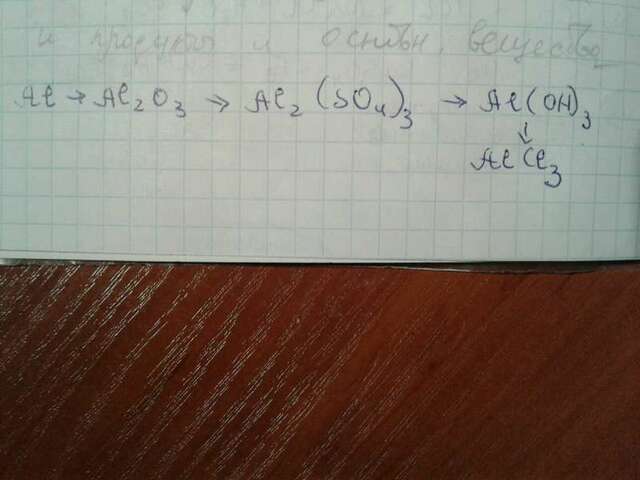 и продукты и основн. вещества
Al → Al₂O₃ → Al₂(SO₄)₃ → Al(OH)₃
↓
AlCl₃